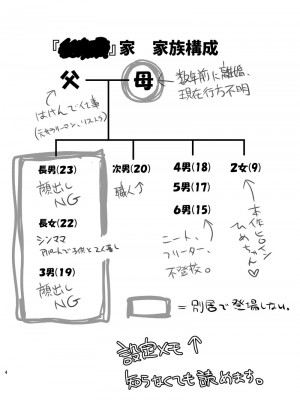 『 』家 家族構成
父
母
数年前に離婚、
現在行方不明
はけんで仕事
(元サラリーマン、リストラ)
長男(23)
顔出し
NG
長女(22)
シンママ
子供と2人暮し
3男(19)
顔出し
NG
次男(20)
職人
4男(18)
5男(17)
6男(15)
ニート、
フリーター、
不登校。
2女(9)
本作ヒロイン
ひめちゃん
=別居で登場しない。
設定メモ
知らなくても読めます。
4